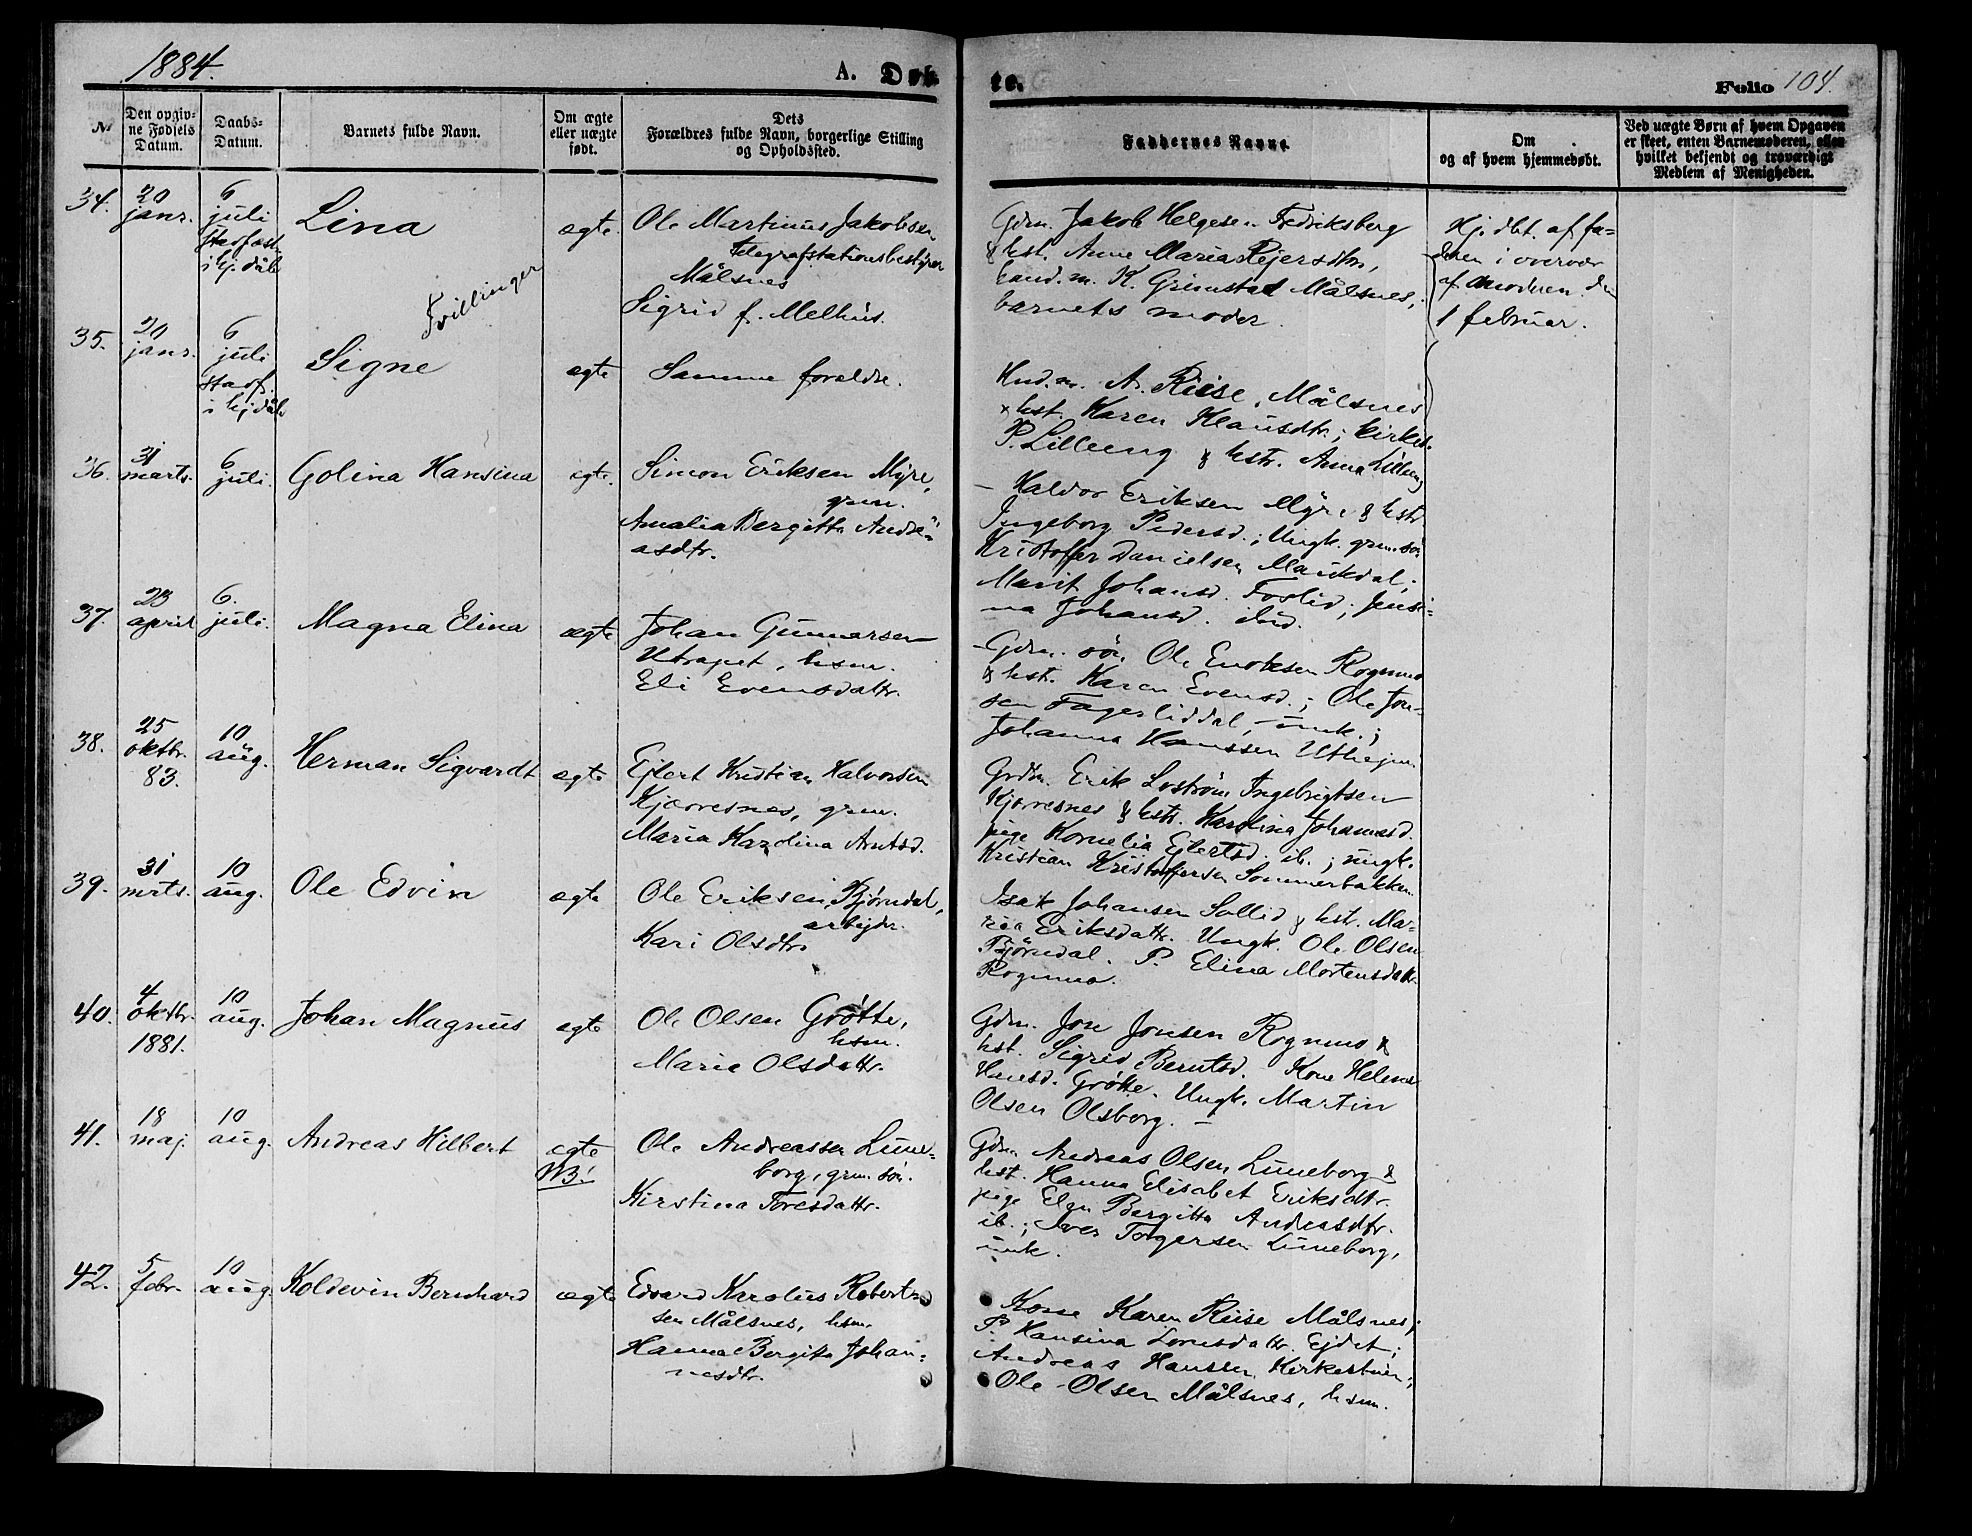 1884.
A. Døb
te.
Folio 104.
№
Den opgiv-
ne Fødsels
Datum.
Daabs-
Datum.
Barnets fulde Navn.
Om ægte
eller uægte
født.
Dets
Forældres fulde Navn, borgerlige Stilling
og Opholdssted.
Faddernes Navne
Om
og af hvem hjemmedøbt.
Ved uægte Børn af hvem Opgaven
er skeet, enten Barnemoderen, eller
hvilket bekjendt og troværdigt
Medlem af Menigheden.
34.
20
janr.
6
juli
stadfæst
i hj. dåb
Lina
Tvillinger
ægte
Ole Martinus Jakobsen
telegrafstationsbestyrer
Målsnes
Sigrid f. Melhus.
Gdm. Jakob Helgesen Fredriksberg
& kst. Anne Maria Rejersdtr,
hand.m. K. Grimstad Målsnes,
barnets moder.
Hj. dbt. af fa-
deren i overvær
af moderen den
1 februar.
35.
20
janr.
6
juli
stadf.
i hj dåb
Signe
ægte
Samme foreldre.
Hnd.m. A. Riise, Målsnes
& kst. Karen Klausdtr; kirkes.
P. Lilleeng & kstr. Anna Lilleeng
36.
31
marts.
6
juli.
Golina Hansina
egte.
Simon Eriksen Myre,
grm.
Amalia Bergitta Andre-
asdtr.
– Haldor Eriksen Myre & kstr
Ingeborg Pedersd.; Ungk. grm. sön
Kristoffer Danielsen Maukdal;
Marit Johansd. Foslid; Jensi-
na Johansd. ibid.
37.
23
april
6.
juli.
Magna Elina
ægte
Johan Gunnarsen
Utrapet, hsm.
Eli Evensdattr.
– Gdm. sön Ole Enoksen Rognmo
& kst. Karen Evensd.; Ole Jon-
sen Fagerliddal, umk.;
Johanna Hanssen Uthejm.
38.
25
oktbr.
83.
10
aug.
Herman Sigvardt
egte
Ejlert Kristian Halvorsen
Kjærresnes, grm.
Maria Karolina Arntsd.
Grdm. Erik Loström Ingebrigtsen
Kjerresnes & kstr. Karolina Johannesd.
pige Kornelia Ejlertsd. ib.; ungk.
Kristian Kristoffersen Sommerbakken.
39.
31
mrts.
10
aug.
Ole Edvin
ægte
Ole Eriksen Bjørndal,
arbejdr.
Kari Olsdtr.
Isak Johansen Sollid & kst. Ma-
ria Eriksdattr. Ungk. Ole Olsen
Bjørndal. P. Elina Mortensdattr
Rognmo.
40.
4
oktbr.
1881.
10
aug.
Johan Magnus
egte
Ole Olsen Grøtte,
hsm.
Marie Olsdattr.
Gdm. Jon Jonsen Rognmo &
kst. Sigrid Berntsd. Kone Helena
Hansd. Grøtte. Ungk. Martin
Olsen Olsborg. –
41.
18
maj.
10
aug.
Andreas Hilbert
egte
NB!
Ole Andreassen Lune-
borg, grm. sön.
Kirstina Toresdattr.
Gdm. Andreas Olsen Luneborg &
kst. Hanna Elisabet Eriksdtr.
pige Elen Bergitta Andreasdtr.
ib.; Iver Torgersen Luneborg,
umk.
42.
5
febr.
10
aug.
Koldevin Bernhard
ægte
Edvard Karolus Roberts-
sen Målsnes, hsm.
Hanna Bergitta Johan-
nesdtr.
Kone Karen Riise Målsnes;
P. Hansina Lornsdattr. Ejdet;
Andreas Hanssen, Kirkesbuen;
Ole Olsen Målsnes, hsm.